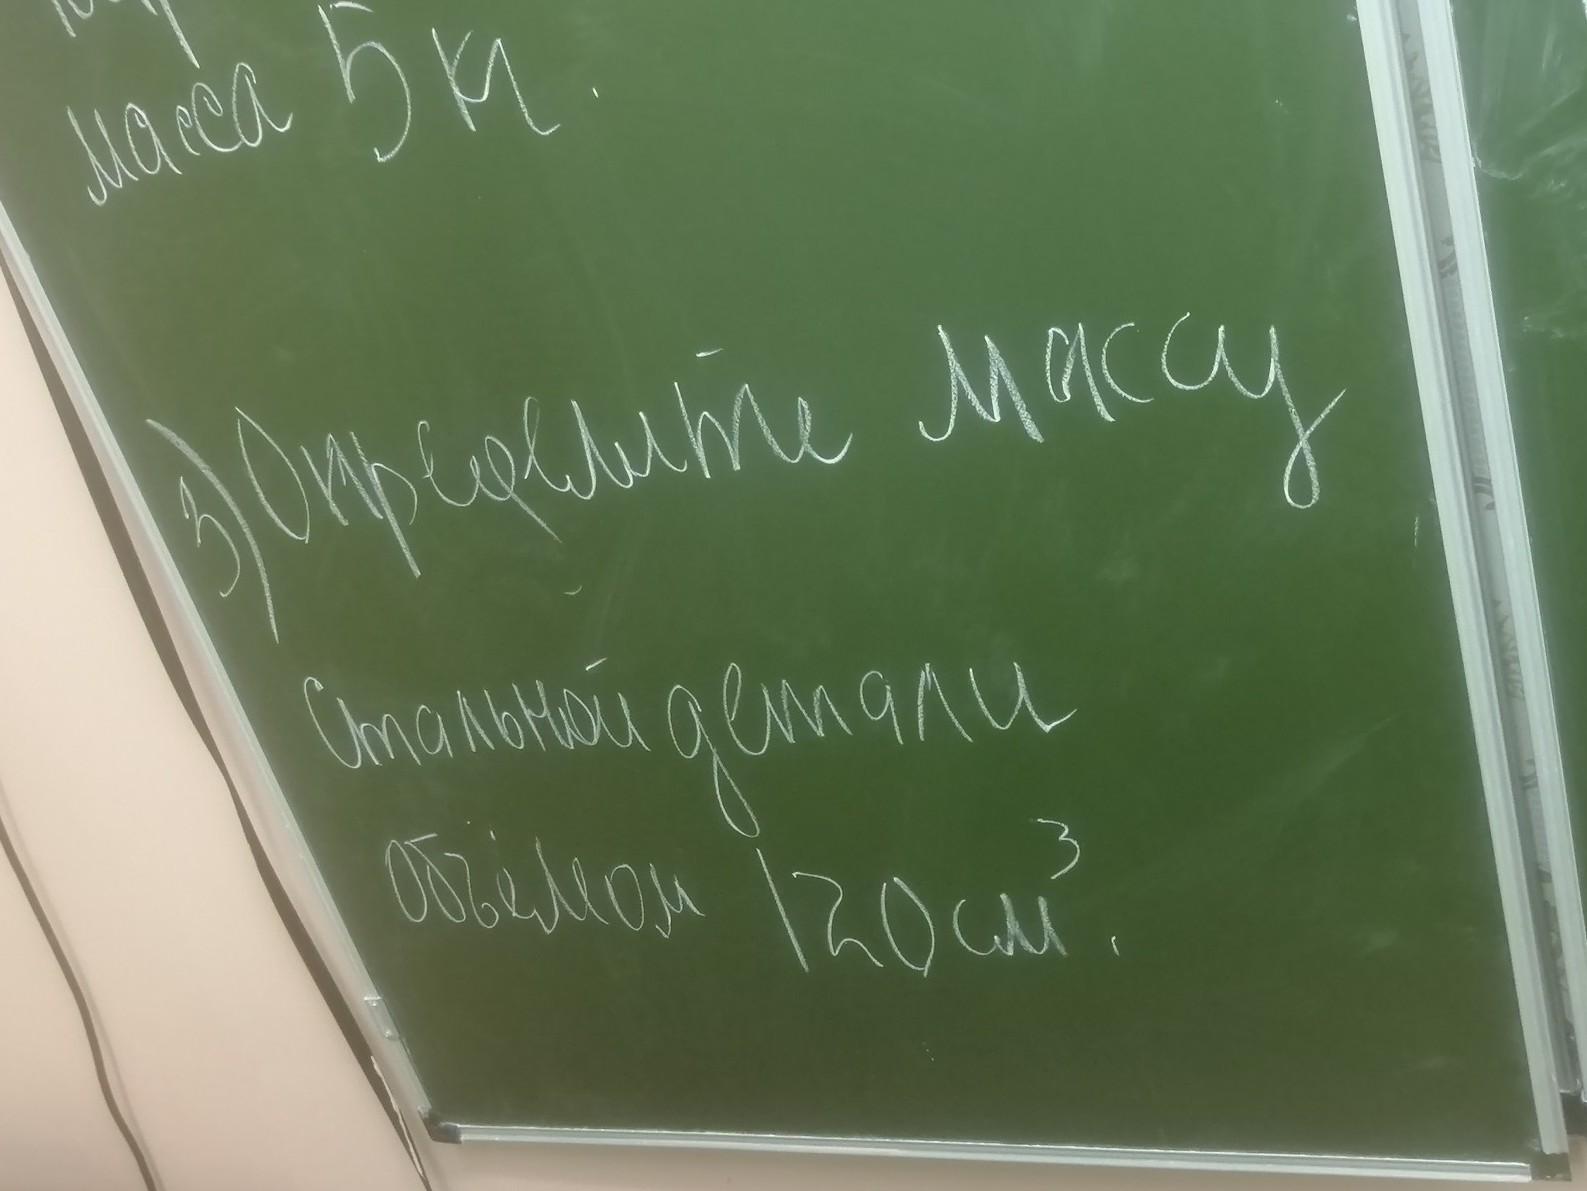 масса 5 кг.
3) Определите массу
стальной детали
объёмом 120 см³.